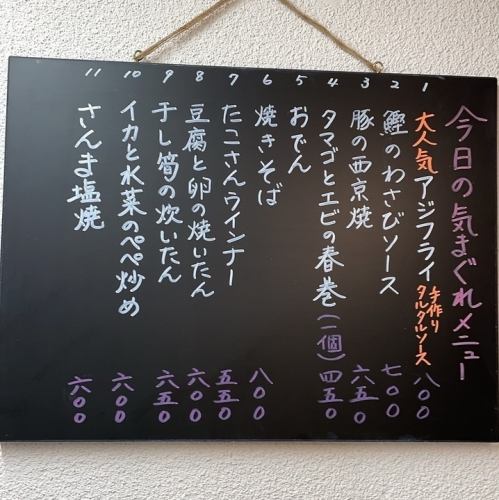 今日の気まぐれメニュー
1 大人気アジフライ 手作り
タルタルソース 八〇〇
2 鰹のわさびソース 七〇〇
3 豚の西京焼 六五〇
4 タマゴとエビの春巻(一個) 四五〇
5 おでん
6 焼きそば 八〇〇
7 たこさんウインナー 五五〇
8 豆腐と卵の焼いたん 六〇〇
9 干し筍の炊いたん 六五〇
10 イカと水菜のペペ炒め 六〇〇
11 さんま塩焼 六〇〇